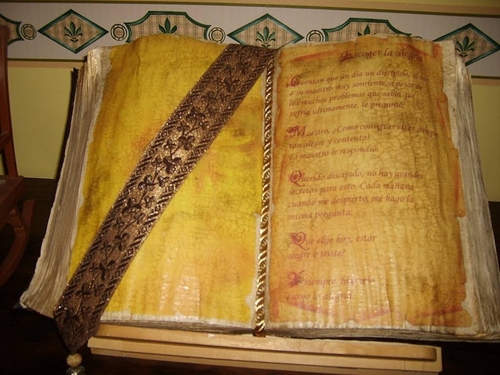 Escoger la alegría
Cuentan que un día un discípulo, al ver
a su maestro muy sonriente, a pesar de
los muchos problemas que sabía que
últimamente, le preguntó:
Maestro, ¿Cómo consigue estar siempre
tan alegre y contento?
El maestro le respondió:
Querido discípulo, no hay grandes
secretos para esto. Cada mañana
cuando me despierto, me hago la
misma pregunta:
¿Qué elijo hoy, estar
alegre o triste?
Y siempre
alegría